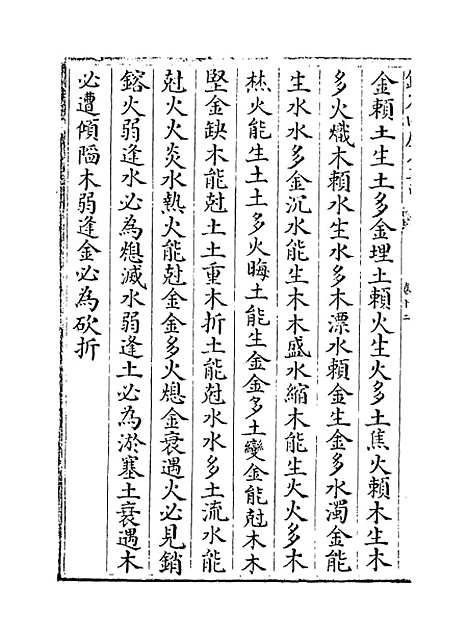 金賴土生土多金埋土賴火生火多土焦火賴木生木
多火熾木賴水生水多木漂水賴金生金多水濁金能
生水水多金沉水能生木木盛水縮木能生火火多木
焚火能生土土多火晦土能生金金多土變金能尅木木
堅金缺木能尅土土重木折土能尅水水多土流水能
尅火火炎水熱火能尅金金多火熄金衰遇火必見銷
鎔火弱逢水必為熄滅水弱逢土必為淤塞土衰遇木
必遭傾陷木弱逢金必為砍折